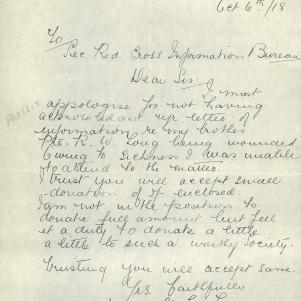 Oct 6th/18
To
Sec Red Cross Information Bureau
Dear Sir
I most
apologise for not having
acknowledged yr letter of
information re my brother
Pte. R. W. Long being wounded
Owing to Sickness I was unable
to attend to the matter.
I trust you will accept small
donation of enclosed.
I am not in the position to
donate full amount but feel
it a duty to donate a little
a little to such a worthy Society.
Trusting you will accept same.
Yrs. faithfully